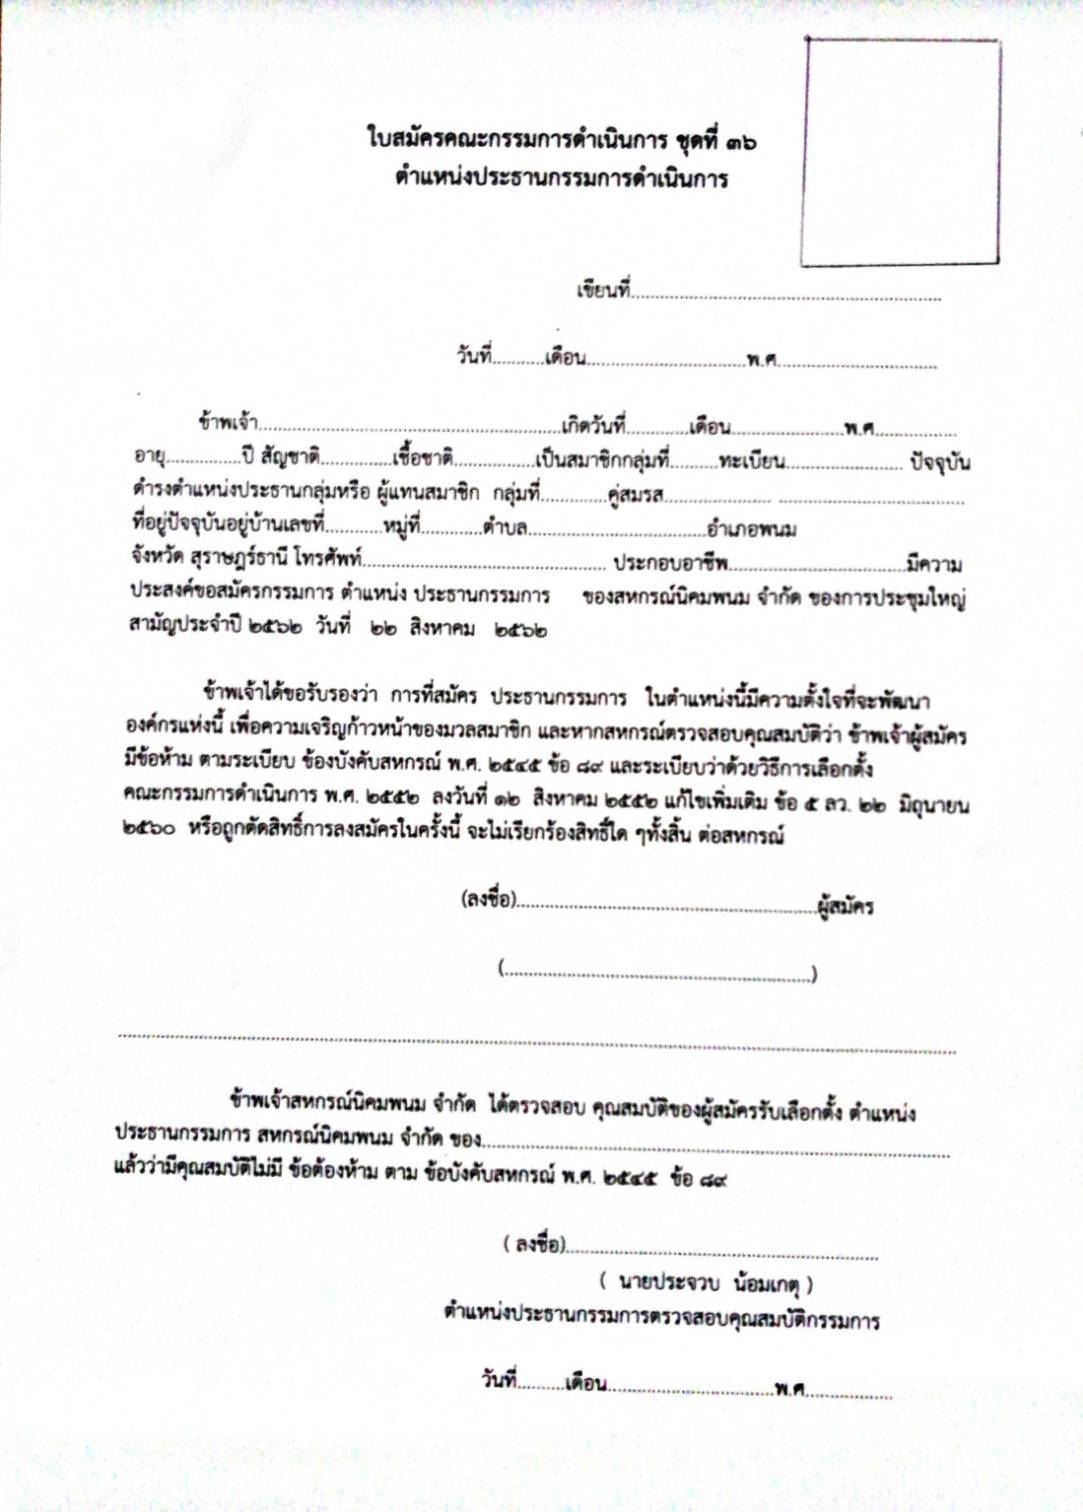 ใบสมัครคณะกรรมการดำเนินการ ชุดที่ ๓๖
ตำแหน่งประธานกรรมการดำเนินการ
เขียนที่..............................................................
วันที่...........เดือน................................พ.ศ................................
ข้าพเจ้า.............................................................เกิดวันที่.............เดือน.......................พ.ศ................
อายุ...............ปี สัญชาติ..............เชื้อชาติ................เป็นสมาชิกกลุ่มที่..........ทะเบียน........................ ปัจจุบัน
ดำรงตำแหน่งประธานกลุ่มหรือ ผู้แทนสมาชิก กลุ่มที่.............คู่สมรส...................... ......................................
ที่อยู่ปัจจุบันอยู่บ้านเลขที่............หมู่ที่.............ตำบล....................................อำเภอพนม
จังหวัด สุราษฎร์ธานี โทรศัพท์................................................. ประกอบอาชีพ....................................มีความ
ประสงค์ขอสมัครกรรมการ ตำแหน่ง ประธานกรรมการ ของสหกรณ์นิคมพนม จำกัด ของการประชุมใหญ่
สามัญประจำปี ๒๕๖๒ วันที่ ๒๒ สิงหาคม ๒๕๖๒
ข้าพเจ้าได้ขอรับรองว่า การที่สมัคร ประธานกรรมการ ในตำแหน่งนี้มีความตั้งใจที่จะพัฒนา
องค์กรแห่งนี้ เพื่อความเจริญก้าวหน้าของมวลสมาชิก และหากสหกรณ์ตรวจสอบคุณสมบัติว่า ข้าพเจ้าผู้สมัคร
มีข้อห้าม ตามระเบียบ ข้องบังคับสหกรณ์ พ.ศ. ๒๕๔๕ ข้อ ๘๙ และระเบียบว่าด้วยวิธีการเลือกตั้ง
คณะกรรมการดำเนินการ พ.ศ. ๒๕๕๒ ลงวันที่ ๑๒ สิงหาคม ๒๕๕๒ แก้ไขเพิ่มเติม ข้อ ๕ ลว. ๒๒ มิถุนายน
๒๕๖๐ หรือถูกตัดสิทธิ์การลงสมัครในครั้งนี้ จะไม่เรียกร้องสิทธิ์ใด ๆทั้งสิ้น ต่อสหกรณ์
(ลงชื่อ)............................................................ผู้สมัคร
(..............................................................)
........................................................................................................................................................................
ข้าพเจ้าสหกรณ์นิคมพนม จำกัด ได้ตรวจสอบ คุณสมบัติของผู้สมัครรับเลือกตั้ง ตำแหน่ง
ประธานกรรมการ สหกรณ์นิคมพนม จำกัด ของ..............................................................................................
แล้วว่ามีคุณสมบัติไม่มี ข้อต้องห้าม ตาม ข้อบังคับสหกรณ์ พ.ศ. ๒๕๔๕ ข้อ ๘๙
( ลงชื่อ)...............................................................
( นายประจวบ น้อมเกตุ )
ตำแหน่งประธานกรรมการตรวจสอบคุณสมบัติกรรมการ
วันที่..........เดือน.................................พ.ศ..................